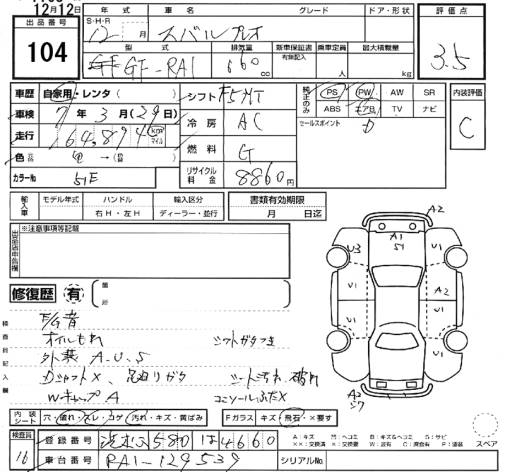 12月12日
出品番号
104
年式 車名 グレード ドア・形状
S・H・R
12 月 スバル プレオ
型式 排気量 新車保証書 乗車定員 最大積載量
有無記入
GF-RA1 660 cc 人 kg
評価点
3.5
車歴 自家用・レンタ ( )
車検 7年3月(29日)
走行 164,894 km マイル
色
カラーNo 51E
シフト F5MT
冷房 AC
燃料 G
リサイクル料金 8860円
純正のみ PS PW AW SR
ABS エアB TV ナビ
セールスポイント
内装評価
C
輸入車 モデル年式 ハンドル 輸入区分
右H・左H ディーラー・並行
書類有効期限
月 日迄
※注意事項等記載
修復歴 有
箇所
F/G音
オイルもれ シフトガタつき
外装 A.U.S
Dシャフト×、足廻りガタ シート汚れ 破れ
Wキャップ A コンソールふた×
A2
A1
S1
U3 U1
U1 A2
U1 U1
A2
S7
内装シート 穴・破れ・スレ・コゲ 汚れ・キズ・黄ばみ Fガラス キズ・飛石・×要す
スペア
検査員
16
登録番号 580 は 4660
車台番号 RA1-129539 シリアルNo